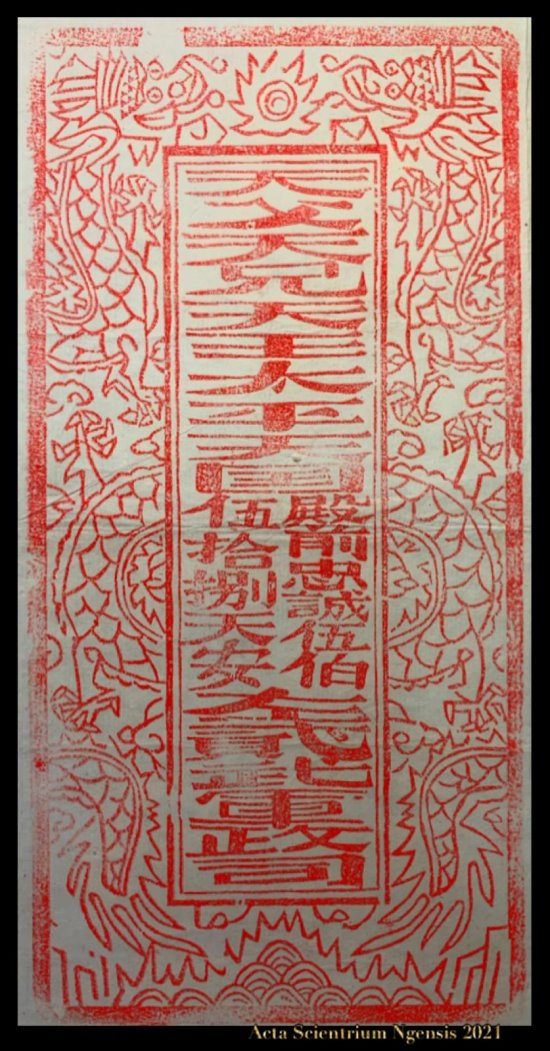 天父天兄天王太平天囯
殿前忠誠伍佰
伍拾捌天安
軍政司
Acta Scientrium Ngensis 2021